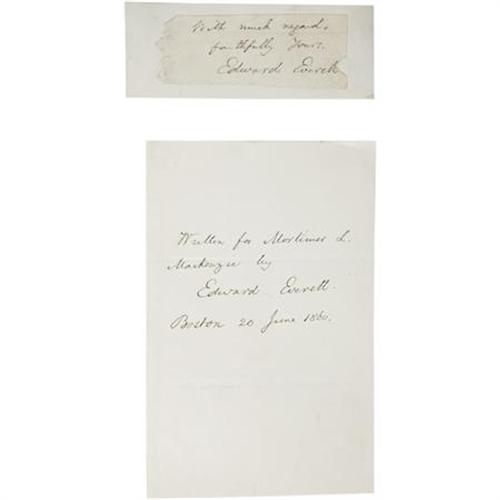 With much regard,
faithfully Yours,
Edward Everett
Written for Mortimer L.
Mackenzie by
Edward Everett.
Boston 20 June 1860.